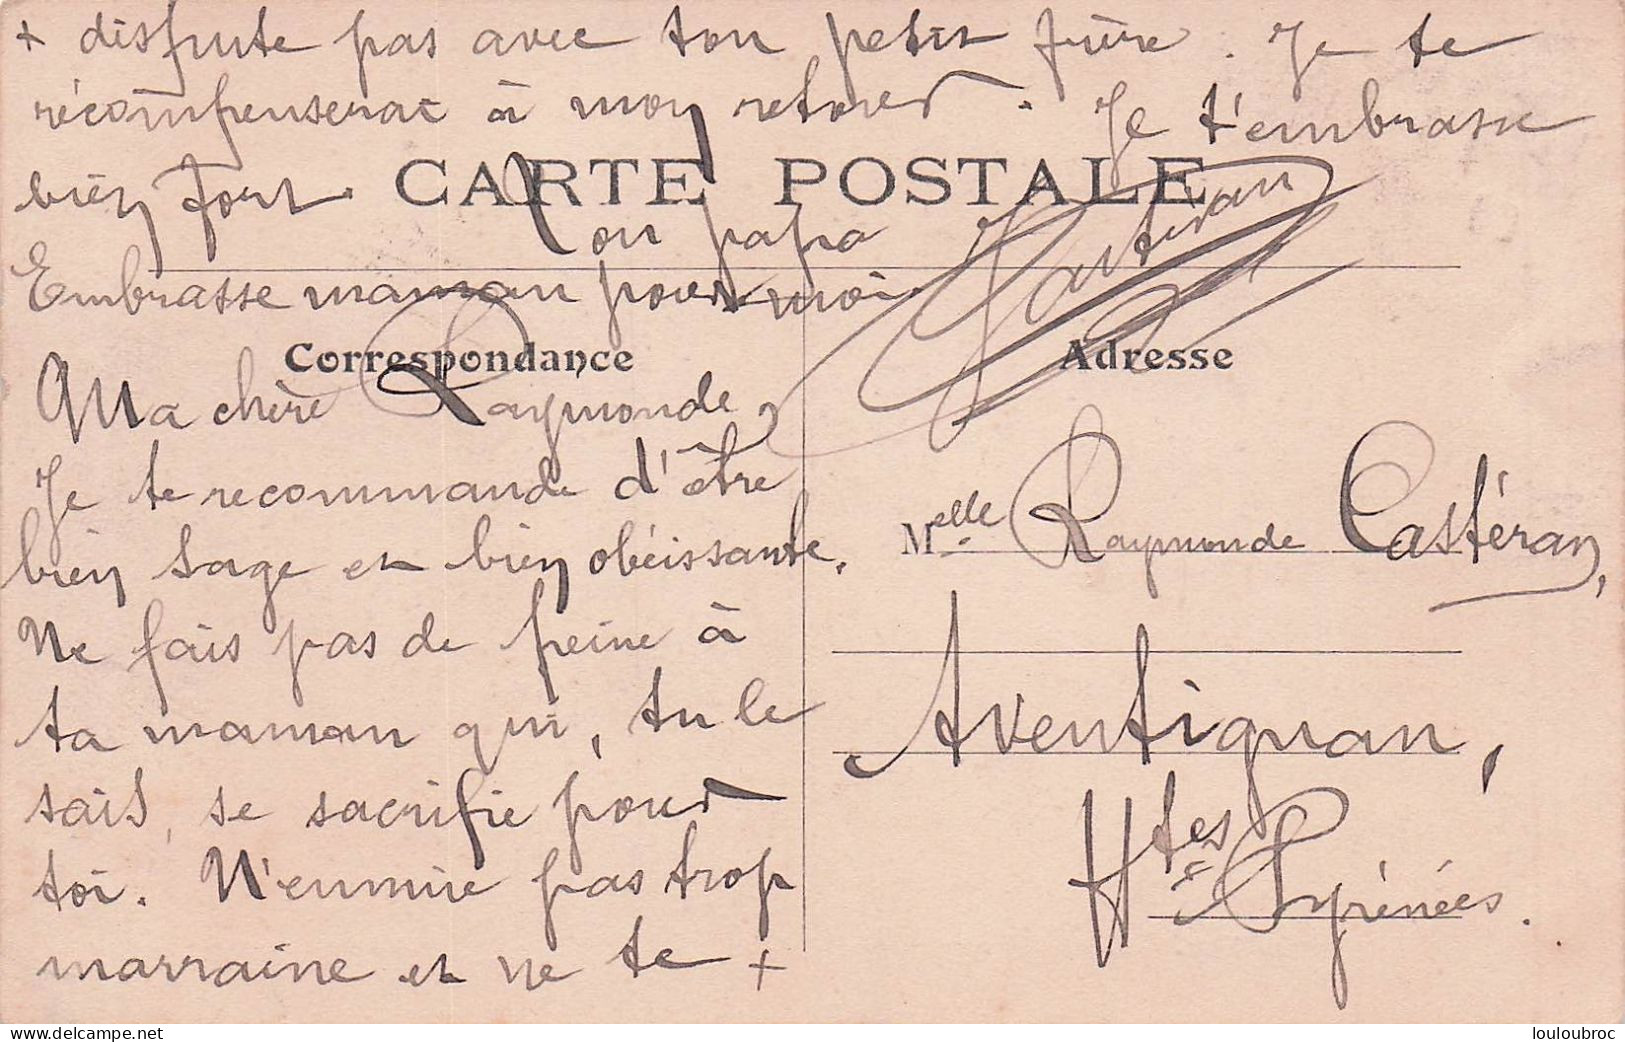 + dispute pas avec ton petit frère. Je te
récompenserai à mon retour. Je t'embrasse
bien fort.
CARTE POSTALE
Ton papa
Castéran
Embrasse maman pour moi
Correspondance
Ma chère Raymonde,
Je te recommande d'être
bien sage et bien obéissante.
Ne fais pas de peine à
ta maman qui, tu le
sais, se sacrifie pour
toi. N'ennuie pas trop
marraine et ne te +
Adresse
Melle Raymonde Castéran,
Aventignan,
Htes Pyrénées.
louloubroc
delcampe.net